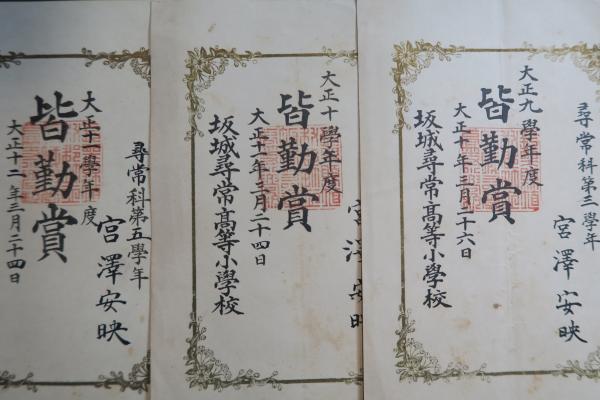 尋常科第三學年
宮澤安映
大正九學年度
皆勤賞
大正十年三月二十六日
坂城尋常高等小學校
宮澤安映
大正十學年度
皆勤賞
大正十一年三月二十四日
坂城尋常高等小學校
尋常科第五學年
宮澤安映
大正十一學年度
皆勤賞
大正十二年三月二十四日